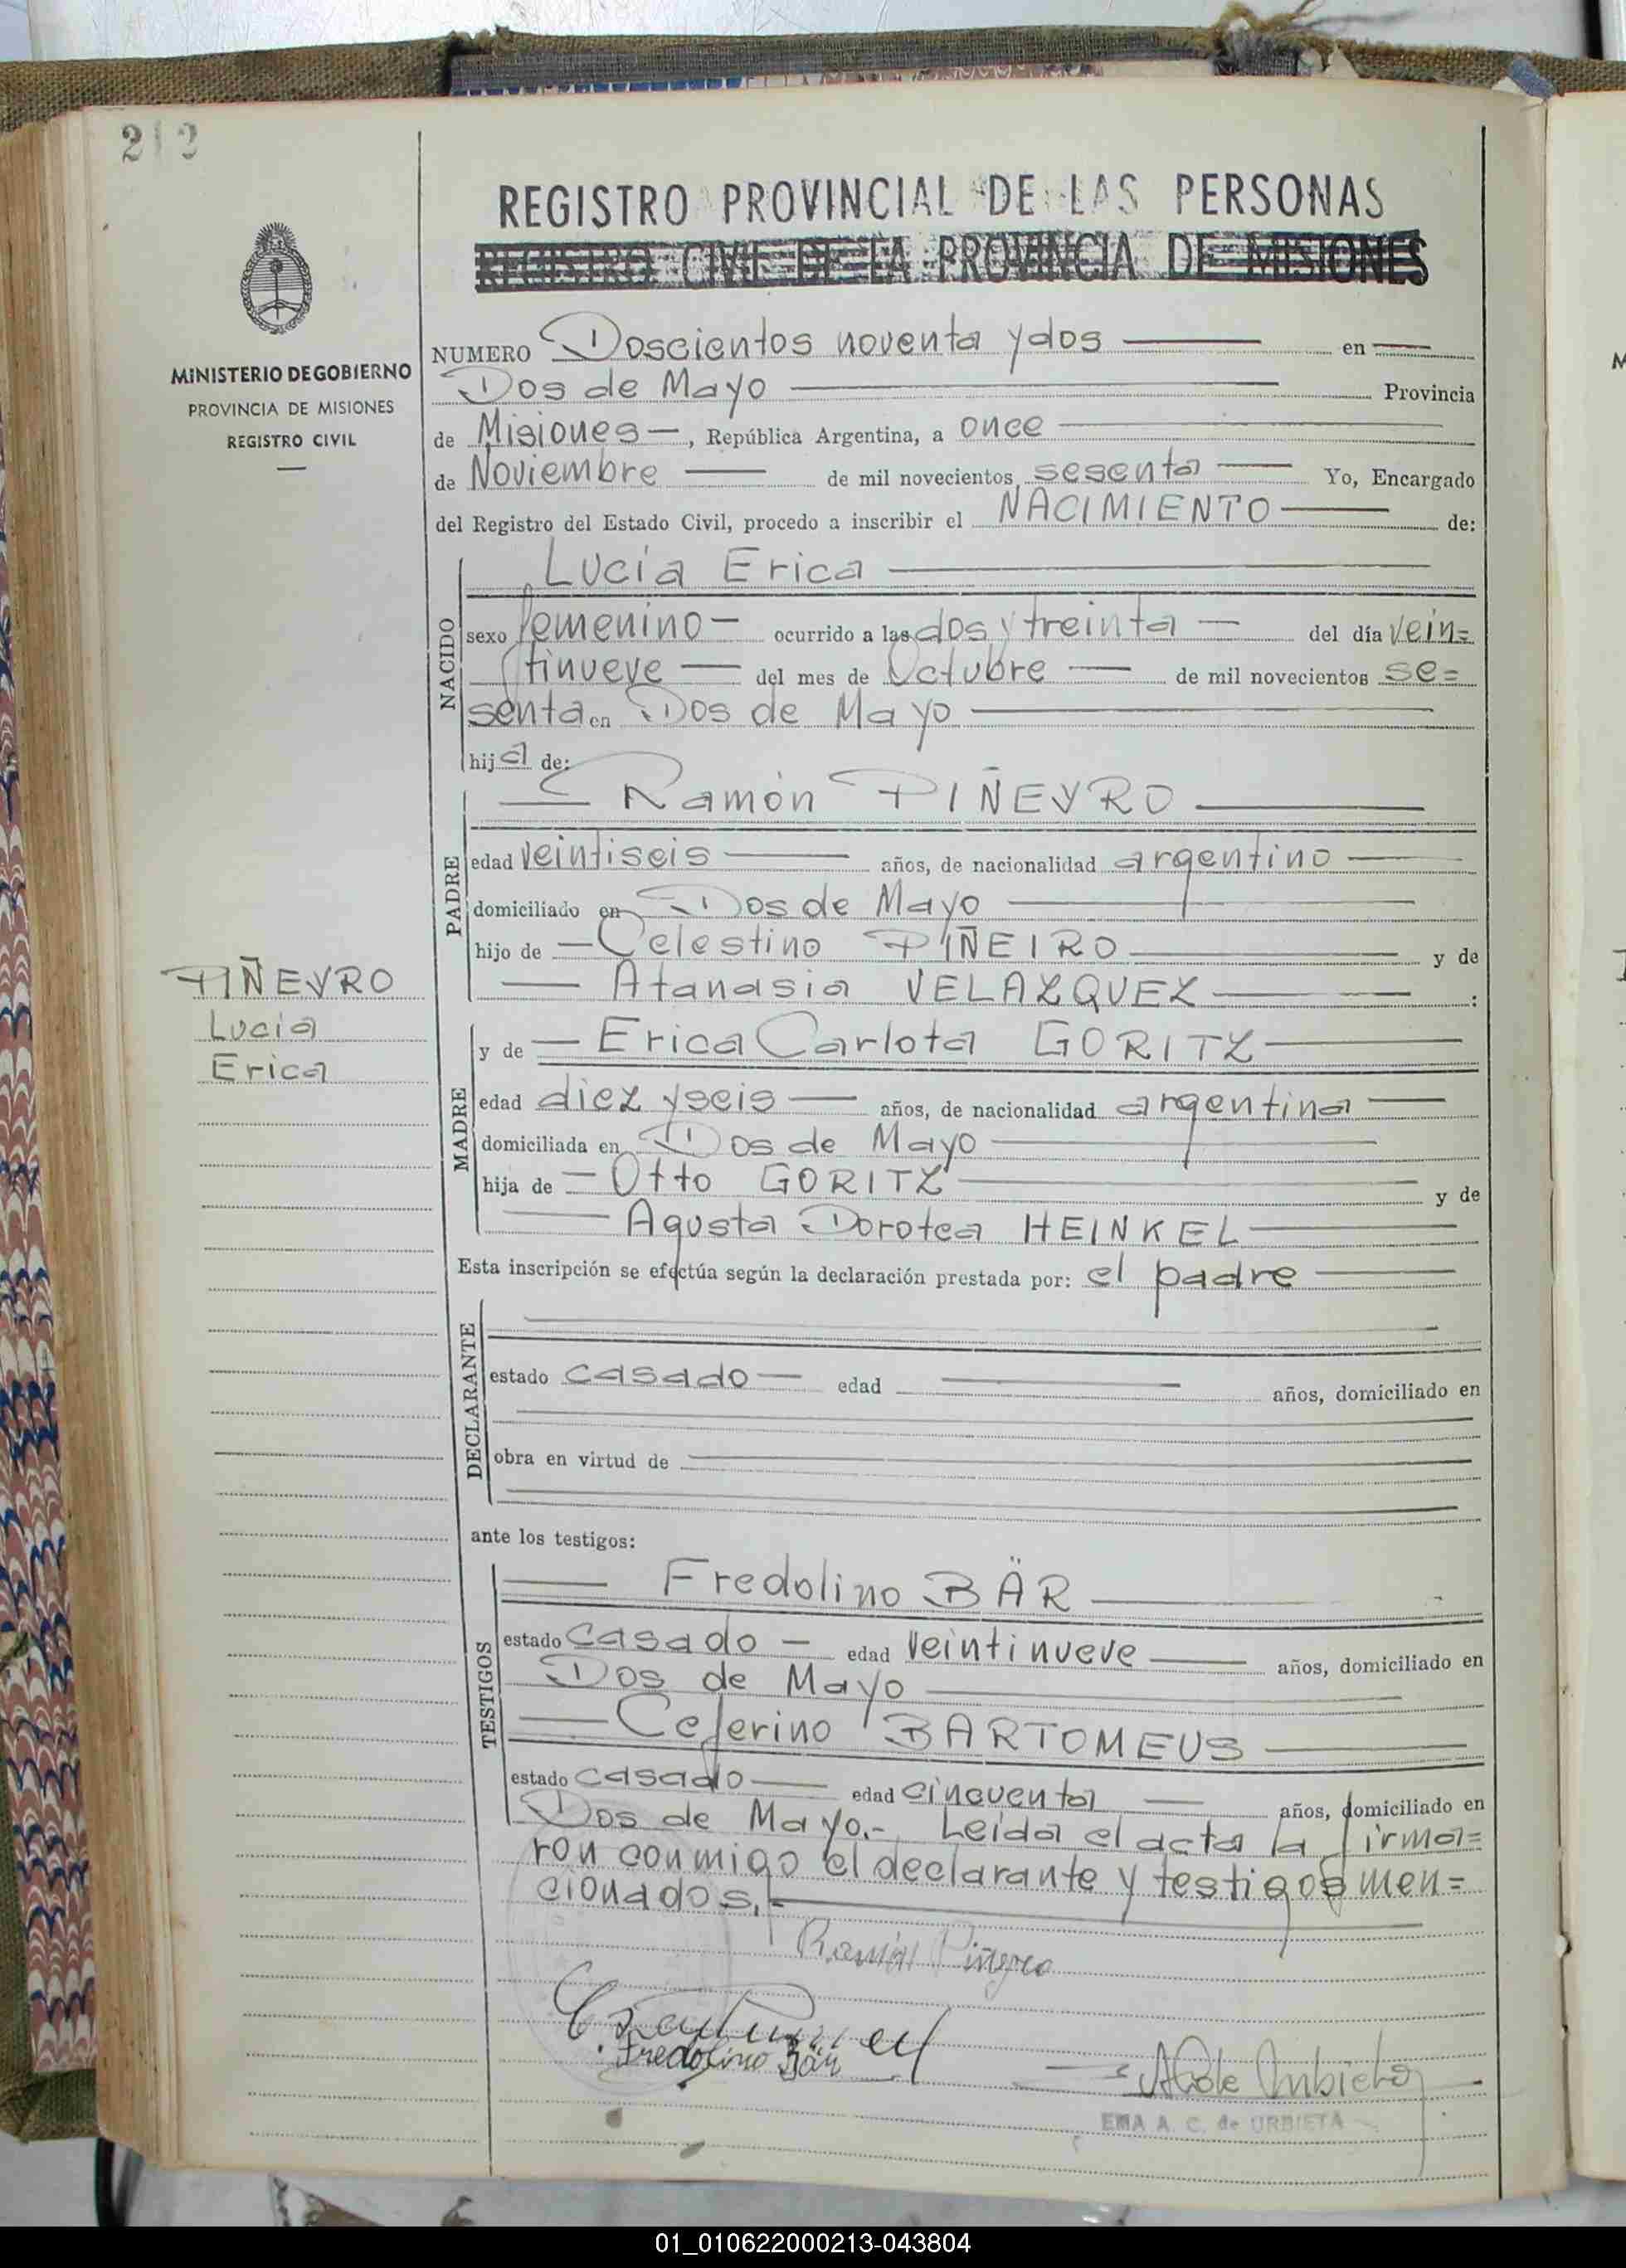 212
REGISTRO PROVINCIAL DE LAS PERSONAS
REGISTRO CIVIL DE LA PROVINCIA DE MISIONES
MINISTERIO DE GOBIERNO
PROVINCIA DE MISIONES
REGISTRO CIVIL
NUMERO Doscientos noventa y dos en
Dos de Mayo Provincia
de Misiones, República Argentina, a once
de Noviembre de mil novecientos sesenta Yo, Encargado
del Registro del Estado Civil, procedo a inscribir el NACIMIENTO de:
NACIDO
Lucía Erica
sexo femenino ocurrido a las dos y treinta del día vein=
tinueve del mes de Octubre de mil novecientos se=
senta en Dos de Mayo
hija de:
PADRE
Ramón PIÑEYRO
edad veintiseis años, de nacionalidad argentino
domiciliado en Dos de Mayo
hijo de Celestino PIÑEIRO y de
Atanasia VELAZQUEZ:
PIÑEYRO
Lucia
Erica
MADRE
y de Erica Carlota GORITZ
edad diez y seis años, de nacionalidad argentina
domiciliada en Dos de Mayo
hija de Otto GORITZ y de
Agusta Dorotea HEINKEL
Esta inscripción se efectúa según la declaración prestada por: el padre
DECLARANTE
estado casado edad años, domiciliado en
obra en virtud de
ante los testigos:
TESTIGOS
Fredolino BÄR
estado casado edad veintinueve años, domiciliado en
Dos de Mayo
Ceferino BARTOMEUS
estado casado edad cincuenta años, domiciliado en
Dos de Mayo.- Leida el acta la firma=
ron conmigo el declarante y testigos men=
cionados.-
Ramón Piñeyro
Fredolino Bär
EMA A. C. de URBIETA
01_010622000213-043804